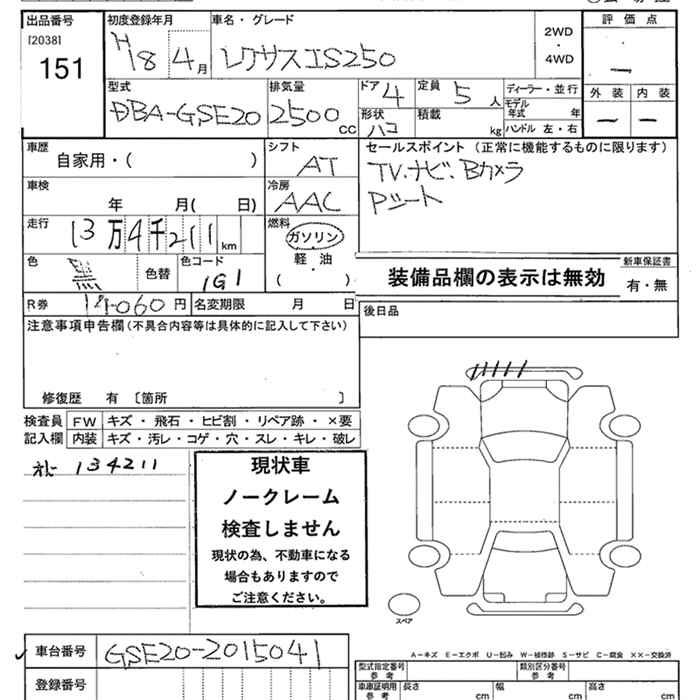 出品番号 初度登録年月 車名・グレード 評価点
[2038] H18 4月 レクサスIS250 2WD・4WD
151 ー
型式 排気量 ドア 4 定員 5人 ディーラー・並行 外装 内装
DBA-GSE20 2500cc 形状 ハコ 積載 kg モデル年式 年 ー ー
ハンドル 左・右
車歴 シフト セールスポイント (正常に機能するものに限ります)
自家用・( ) AT TV.ナビ.Bカメラ
車検 冷房 Pシート
年 月( 日) AAC
走行 燃料
13万4千211km ガソリン
色 色コード 軽油 新車保証書
黒 色替 1G1 ( ・ ) 装備品欄の表示は無効 有・無
R券 円 名変期限 月 日 後日品
注意事項申告欄(不具合内容等は具体的に記入して下さい)
修復歴 有 〔箇所 〕
検査員 FW キズ・飛石・ヒビ割・リペア跡・×要
記入欄 内装 キズ・汚レ・コゲ・穴・スレ・キレ・破レ
134211
現状車
ノークレーム
検査しません
現状の為、不動車になる
場合もありますので
ご注意ください。
スペア
車台番号 GSE20-2015041
A-キズ E-エクボ U-凹み W-補修跡 S-サビ C-腐食 ××-交換済
登録番号 型式指定番号 参考 類別区分番号 参考
車車証明用 参考 長さ cm 幅 cm 高さ cm